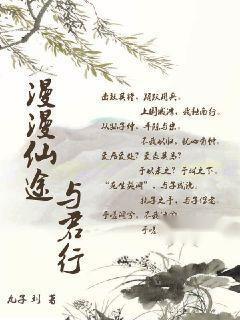 漫漫仙途
与君行
击鼓其镗，踊跃用兵。
土国城漕，我独南行。
从孙子仲，平陈与宋。
不我以归，忧心有忡。
爰居爰处？爰丧其马？
于以求之？于林之下。
“死生契阔”，与子成说。
执子之手，与子偕老。
于嗟阔兮，不我
于嗟
著